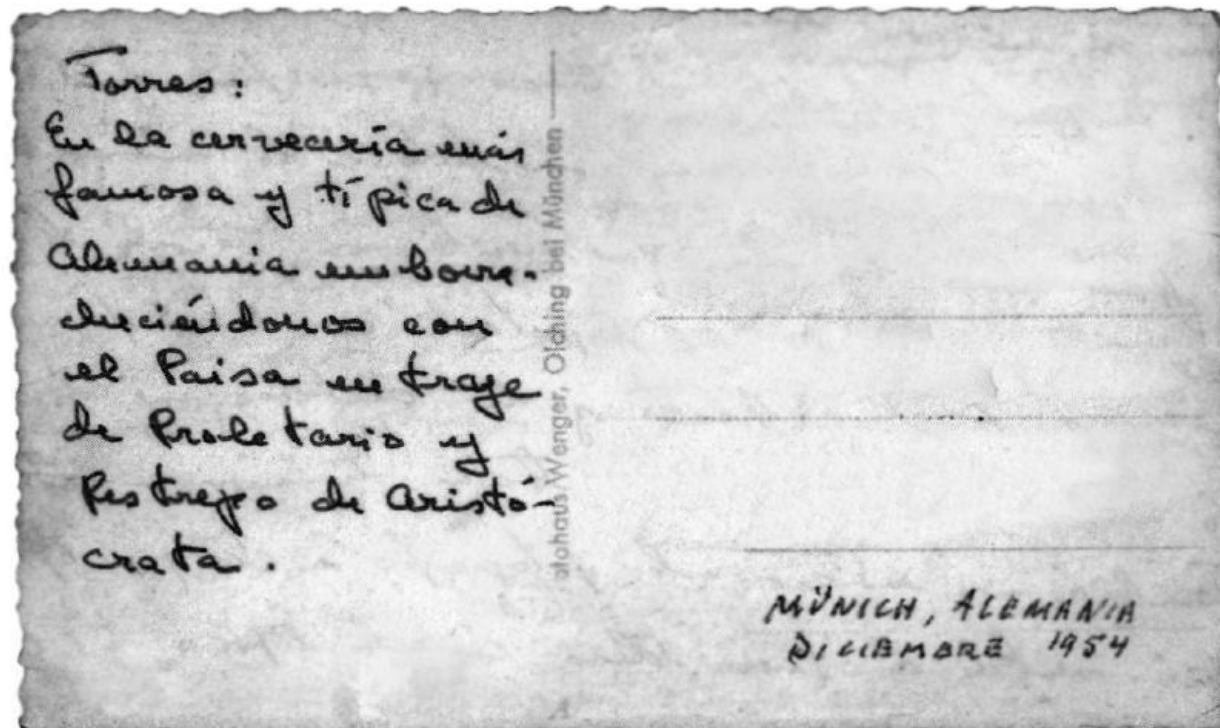 Torres:
En la cervecería más
famosa y típica de
Alemania emborra-
chuciéndonos con
el Paisa en traje
de Proletario y
Restrepo de Aristó-
crata.
otohaus Wenger, Olching bei München
MÜNICH, ALEMANIA
DICIEMBRE 1954